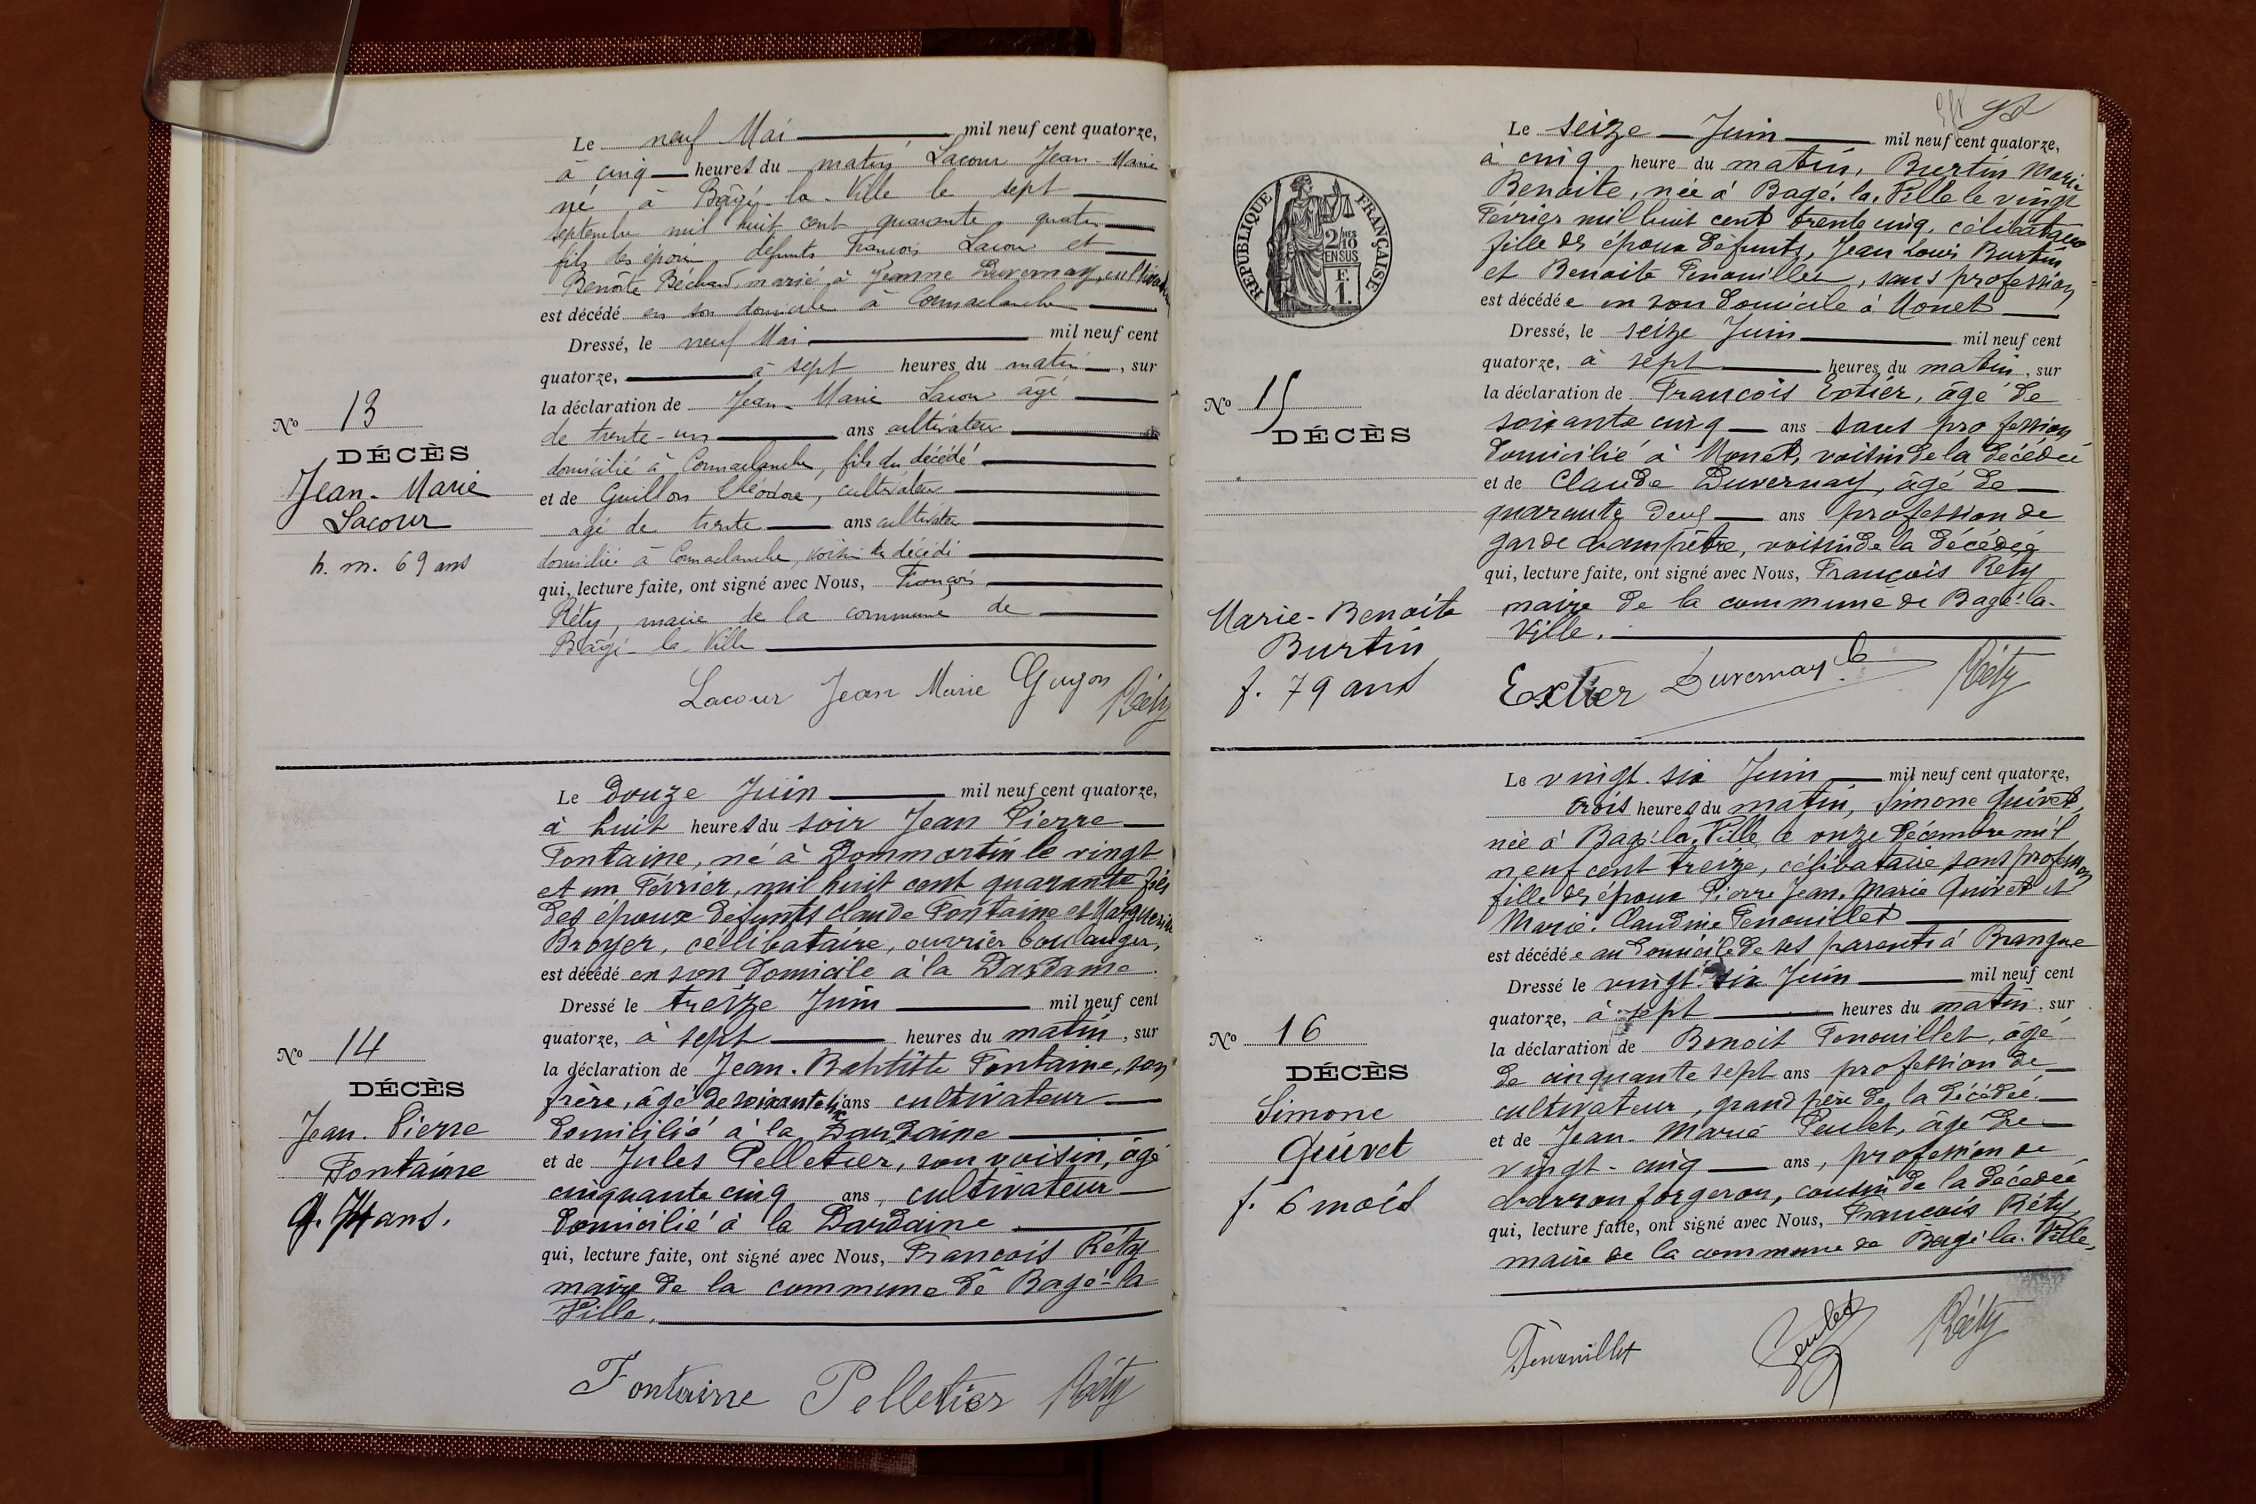 Le neuf Mai mil neuf cent quatorze,
à cinq heures du matin Lacour Jean-Marie
né à Bâgé-la-Ville le sept
septembre mil huit cent quarante quatre
fils des époux défunts François Lacour et
Benoîte Béchard, marié à Jeanne Duvernay, cultivateur
est décédé en son domicile à
Dressé, le neuf Mai mil neuf cent
quatorze, à sept heures du matin, sur
la déclaration de Jean-Marie Lacour âgé
de trente-un ans cultivateur
domicilié à fils du décédé
et de Guillon Théodore, cultivateur
agé de trente ans cultivateur
domicilié à voisin du décédé
qui, lecture faite, ont signé avec Nous, François
Réty, maire de la commune de
Bâgé-la-Ville
Lacour Jean Marie Guyon Réty
No 13
DÉCÈS
Jean-Marie
Lacour
h. m. 69 ans
Le Douze Juin mil neuf cent quatorze,
à huit heures du soir Jean Pierre
Fontaine, né à Dommartin le vingt
et un Février, mil huit cent quarante fils
des époux défunts Claude Fontaine et Marguerite
Broyer, célibataire, ouvrier boulanger,
est décédé en son domicile à la Dardaine.
Dressé le treize Juin mil neuf cent
quatorze, à sept heures du matin, sur
la déclaration de Jean-Baptiste Fontaine, son
frère, âgé de soixante ans cultivateur
Domicilié à la Dardaine
et de Jules Pelletier, son voisin, âgé
cinquante cinq ans, cultivateur
Domicilié à la Dardaine.
qui, lecture faite, ont signé avec Nous, François Réty
maire de la commune de Bagé-la
Ville.
Fontaine Pelletier Réty
No 14
DÉCÈS
Jean-Pierre
Fontaine
74 ans.
RÉPUBLIQUE FRANÇAISE
2/10
EN SUS
F.
1.
Le seize Juin mil neuf cent quatorze,
à cinq heure du matin, Burtin Marie
Benoite, née à Bagé-la-Ville le vingt
Février mil huit cent trente cinq, célibataire
fille des époux défunts, Jean Louis Burtin
et Benoite Fenouillet, sans profession
est décédée en son domicile à Monet
Dressé, le seize Juin mil neuf cent
quatorze, à sept heures du matin, sur
la déclaration de François Extier, âgé de
soixante cinq ans sans profession
Domicilié à Monet, voisin de la décédée
et de Claude Duvernay, âgé de
quarante deux ans profession de
garde champêtre, voisin de la décédée
qui, lecture faite, ont signé avec Nous, François Réty
maire de la commune de Bagé-la-
Ville.
Extier Duvernay C Réty
No 15
DÉCÈS
Marie-Benoite
Burtin
f. 79 ans
Le vingt-six Juin mil neuf cent quatorze,
trois heures du matin, Simone Quivet,
née à Bagé-la-Ville le onze Décembre mil
neuf cent treize, célibataire sans profession
fille des époux Pierre Jean-Marie Quivet et
Marie-Claudine Fenouillet
est décédée au Domicile de ses parents à Brangue
Dressé le vingt-six Juin mil neuf cent
quatorze, à sept heures du matin. sur
la déclaration de Benoit Fenouillet, agé
de cinquante sept ans profession de
cultivateur, grand père de la décédée.
et de Jean-Marie Peulet, âgé de
vingt-cinq ans, profession de
charron forgeron, cousin de la décédée
qui, lecture faite, ont signé avec Nous, François Réty,
maire de la commune de Bâgé-la-Ville,
Fenouillet Peulet Réty
No 16
DÉCÈS
Simone
Quivet
f. 6 mois